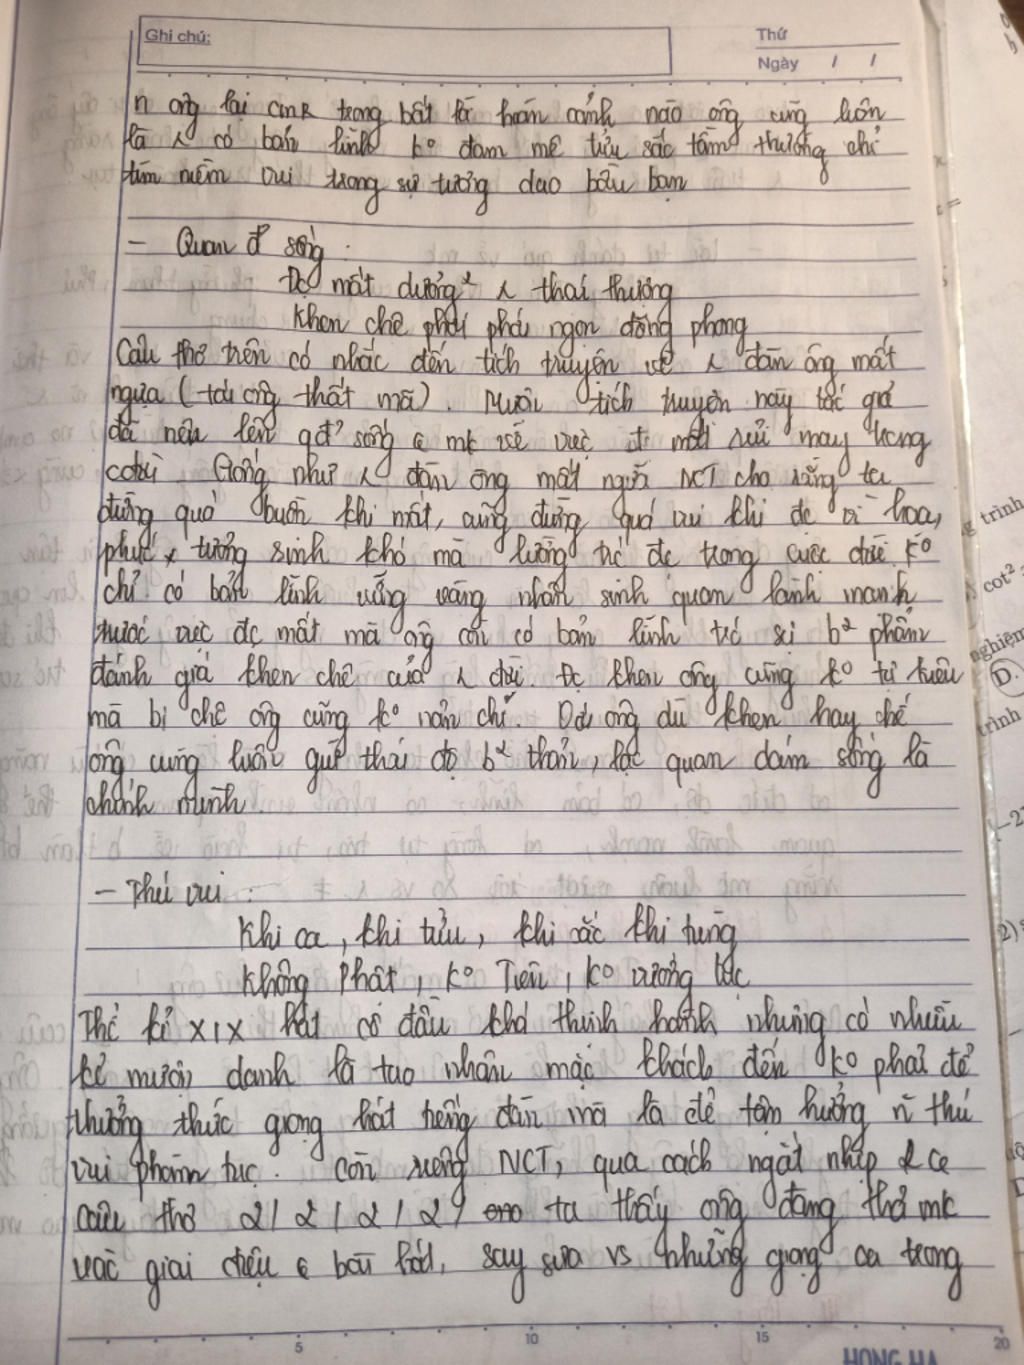 Ghi chú:
Thứ
Ngày / /
n ông lại CMR trong bất kì hoàn cảnh nào ông cũng luôn
là 1 có bản lĩnh k° đam mê tửu sắc tầm thường chỉ
tìm niềm vui trong sự tương dao bầu bạn
- Quan đ' sống:
Đc mất dương² 1 thái thượng
Khen chê phơi phới ngọn đông phong
Câu thơ trên có nhắc đến tích truyện về 1 đàn ông mất
ngựa (tái ông thất mã). Mượn tích truyện này tác giả
đã nêu lên qđ' sống c mk về việc mất rủi may trong
đời. Giống như 1 đàn ông mất ngựa NCT cho rằng ta
đừng quá buồn khi mất, cũng đừng quá vui khi đc vì hoạ,
phúc tương sinh khó mà lường trc đc trong cuộc đời. K°
chỉ có bản lĩnh vững vàng nhân sinh quan lành mạnh
trước việc đc mất mà ông còn có bản lĩnh trc sự b² phẩm
đánh giá khen chê của 1 đời. Đc khen ông cũng k° tự kiêu
mà bị chê ông cũng k° nản chí. Đối ông dù khen hay chê
ông cũng luôn giữ thái độ b² thản, lạc quan dám sống là
chính mình.
- Thú vui:
Khi ca, khi tửu, khi cắc khi tùng
Không Phật, k° Tiên, k° vướng tục
Thế kỉ XIX hát cô đầu khá thịnh hành nhưng có nhiều
kẻ mượn danh là tao nhân mặc khách đến k° phải để
thưởng thức giọng hát tiếng đàn mà là để tận hưởng n thú
vui phàm tục. Còn riêng NCT, qua cách ngắt nhịp
câu thơ 2/2/2/2/ ta thấy ông đang thả mk
vào giai điệu c bài hát, say sưa vs những giọng ca trong
5
10
15
20
HONG HA
g trình
cot²
nghiệm
D.
trình